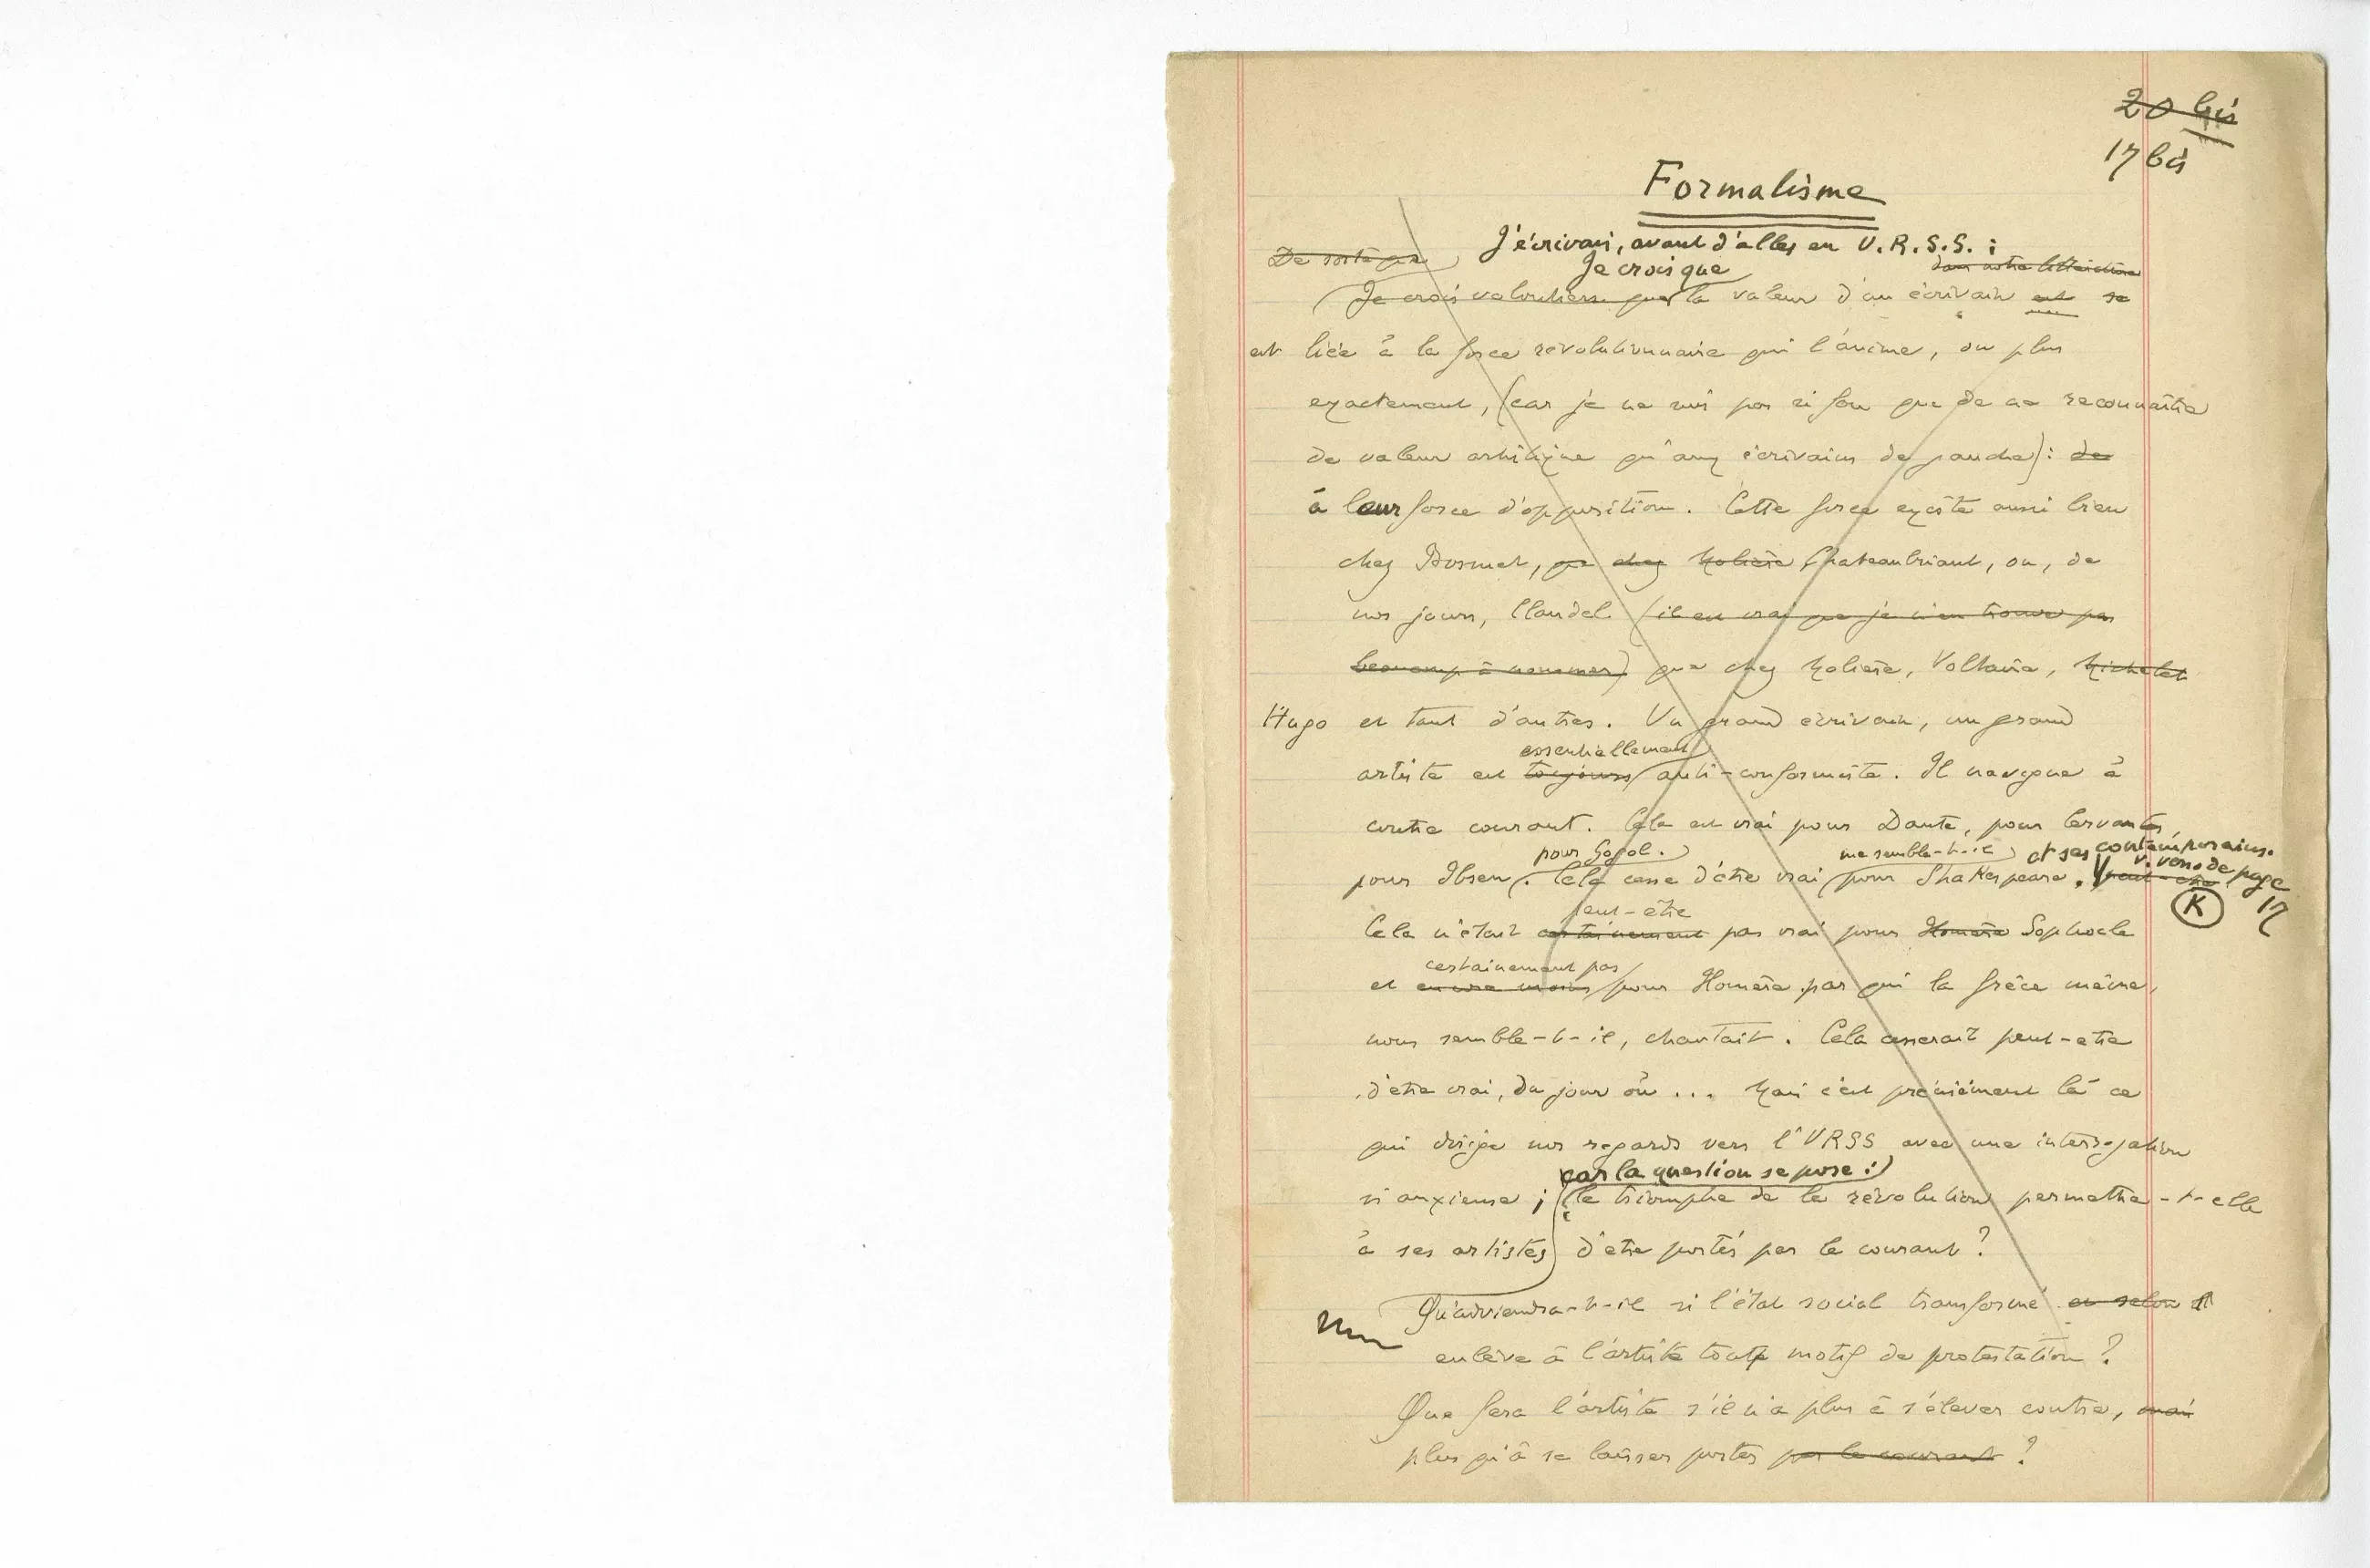 20 bis
17 bis
Formalisme
J'écrivais, avant d'aller en U.R.S.S. :
De sorte que
Je crois que
dans notre littérature
Je crois volontiers que la valeur d'un écrivain est se
est liée à la force révolutionnaire qui l'anime, ou plus
exactement, (car je ne suis pas si fou que de ne reconnaître
de valeur artistique qu'aux écrivains de gauche) : de
à leur force d'opposition. Cette force existe aussi bien
chez Bossuet, que chez Molière Chateaubriant, ou, de
nos jours, Claudel (il est vrai que je n'en trouve pas
beaucoup à nommer) que chez Molière, Voltaire, Michelet
Hugo et tant d'autres. Un grand écrivain, un grand
essentiellement
artiste est toujours anti-conformiste. Il navigue à
contre courant. Cela est vrai pour Dante, pour Cervantes,
pour Gogol. me semble-t-il et ses contemporains.
v. verso de page 17
pour Ibsen. Cela cesse d'être vrai pour Shakespeare. peut-être
K
peut-être
Cela n'était certainement pas vrai pour Homère Sophocle
certainement pas
et encore moins pour Homère par qui la Grèce même,
nous semble-t-il, chantait. Cela cesserait peut-etre
d'etre vrai, du jour où ... Mais c'est précisément là ce
qui dirige nos regards vers l'URSS avec une interrogation
car la question se pose :
si anxieuse ; le triomphe de la révolution permettra-t-elle
à ses artistes d'etre portés par le courant ?
Qu'adviendra-t-il si l'état social transformé
enlève à l'artiste tout motif de protestation ?
Que fera l'artiste s'il n'a plus à s'élever contre, mais
plus qu'à se laisser porter par le courant ?